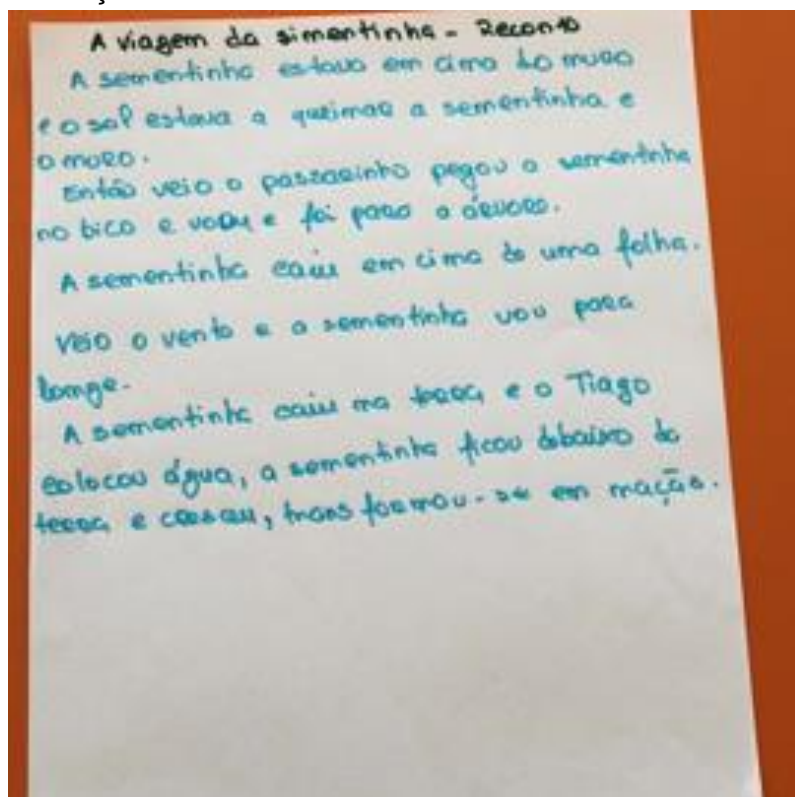 A viagem da simentinha - Reconto
A sementinha estava em cima do muro
e o sol estava a queimar a sementinha e
o muro.
Então veio o passarinho pegou a sementinha
no bico e voou e foi para a árvore.
A sementinha caiu em cima de uma folha.
Veio o vento e a sementinha vou para
longe.
A sementinha caiu na terra e o Tiago
colocou água, a sementinha ficou debaixo da
terra e cresceu, transformou-se em maçãs.